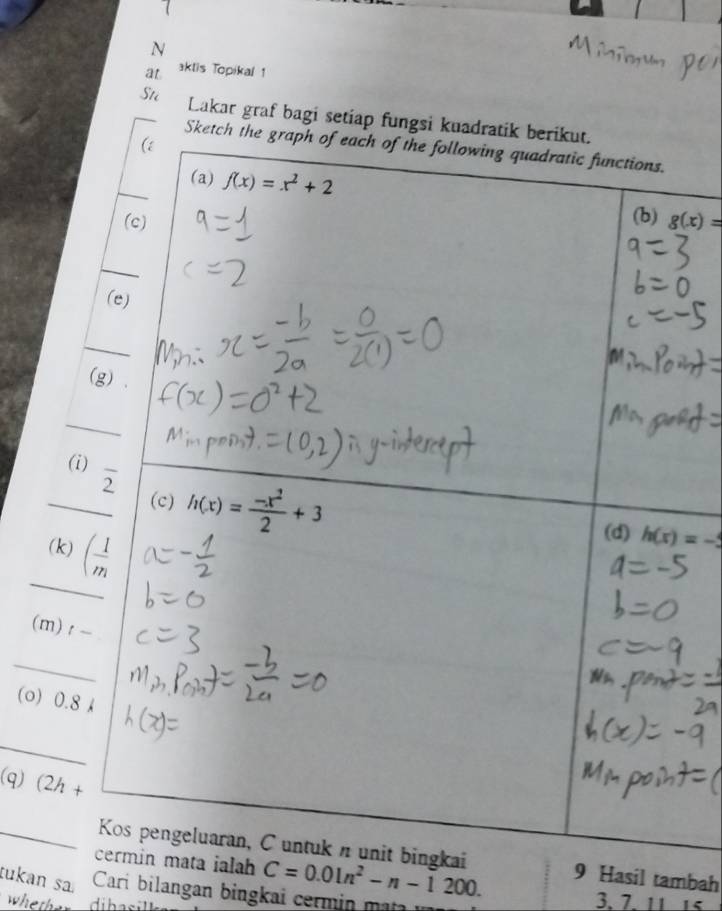 Minimum
N
at
aktis Topikal 1
Lakar graf bagi setiap fungsi kuadratik berikut.
Sketch the graph of each of the following quadratic functions.
(a) f(x) = x² + 2
a = 1
c = 2
Min: x = -b/2a = 0/2(1) = 0
f(x) = 0² + 2
Min point. = (0,2) is y-intercept
(b) g(x) =
a = 3
b = 0
c = -5
Min Point =
(c)
(e)
(g)
(i) /2
(k) (1/m
(m) t -
(o) 0.8
(q) (2h +
(c) h(x) = -x²/2 + 3
a = -1/2
b = 0
c = 3
Min. Point = -b/2a = 0
h(x) =
(d) h(x) = -5
a = -5
b = 0
c = -9
2a
h(x) = -9
Min point = (
Kos pengeluaran, C untuk n unit bingkai
cermin mata ialah C = 0.01n² - n - 1 200.
Cari bilangan bingkai cermin mata
tukan sa
whether
9 Hasil tambah
3, 7, 11, 15